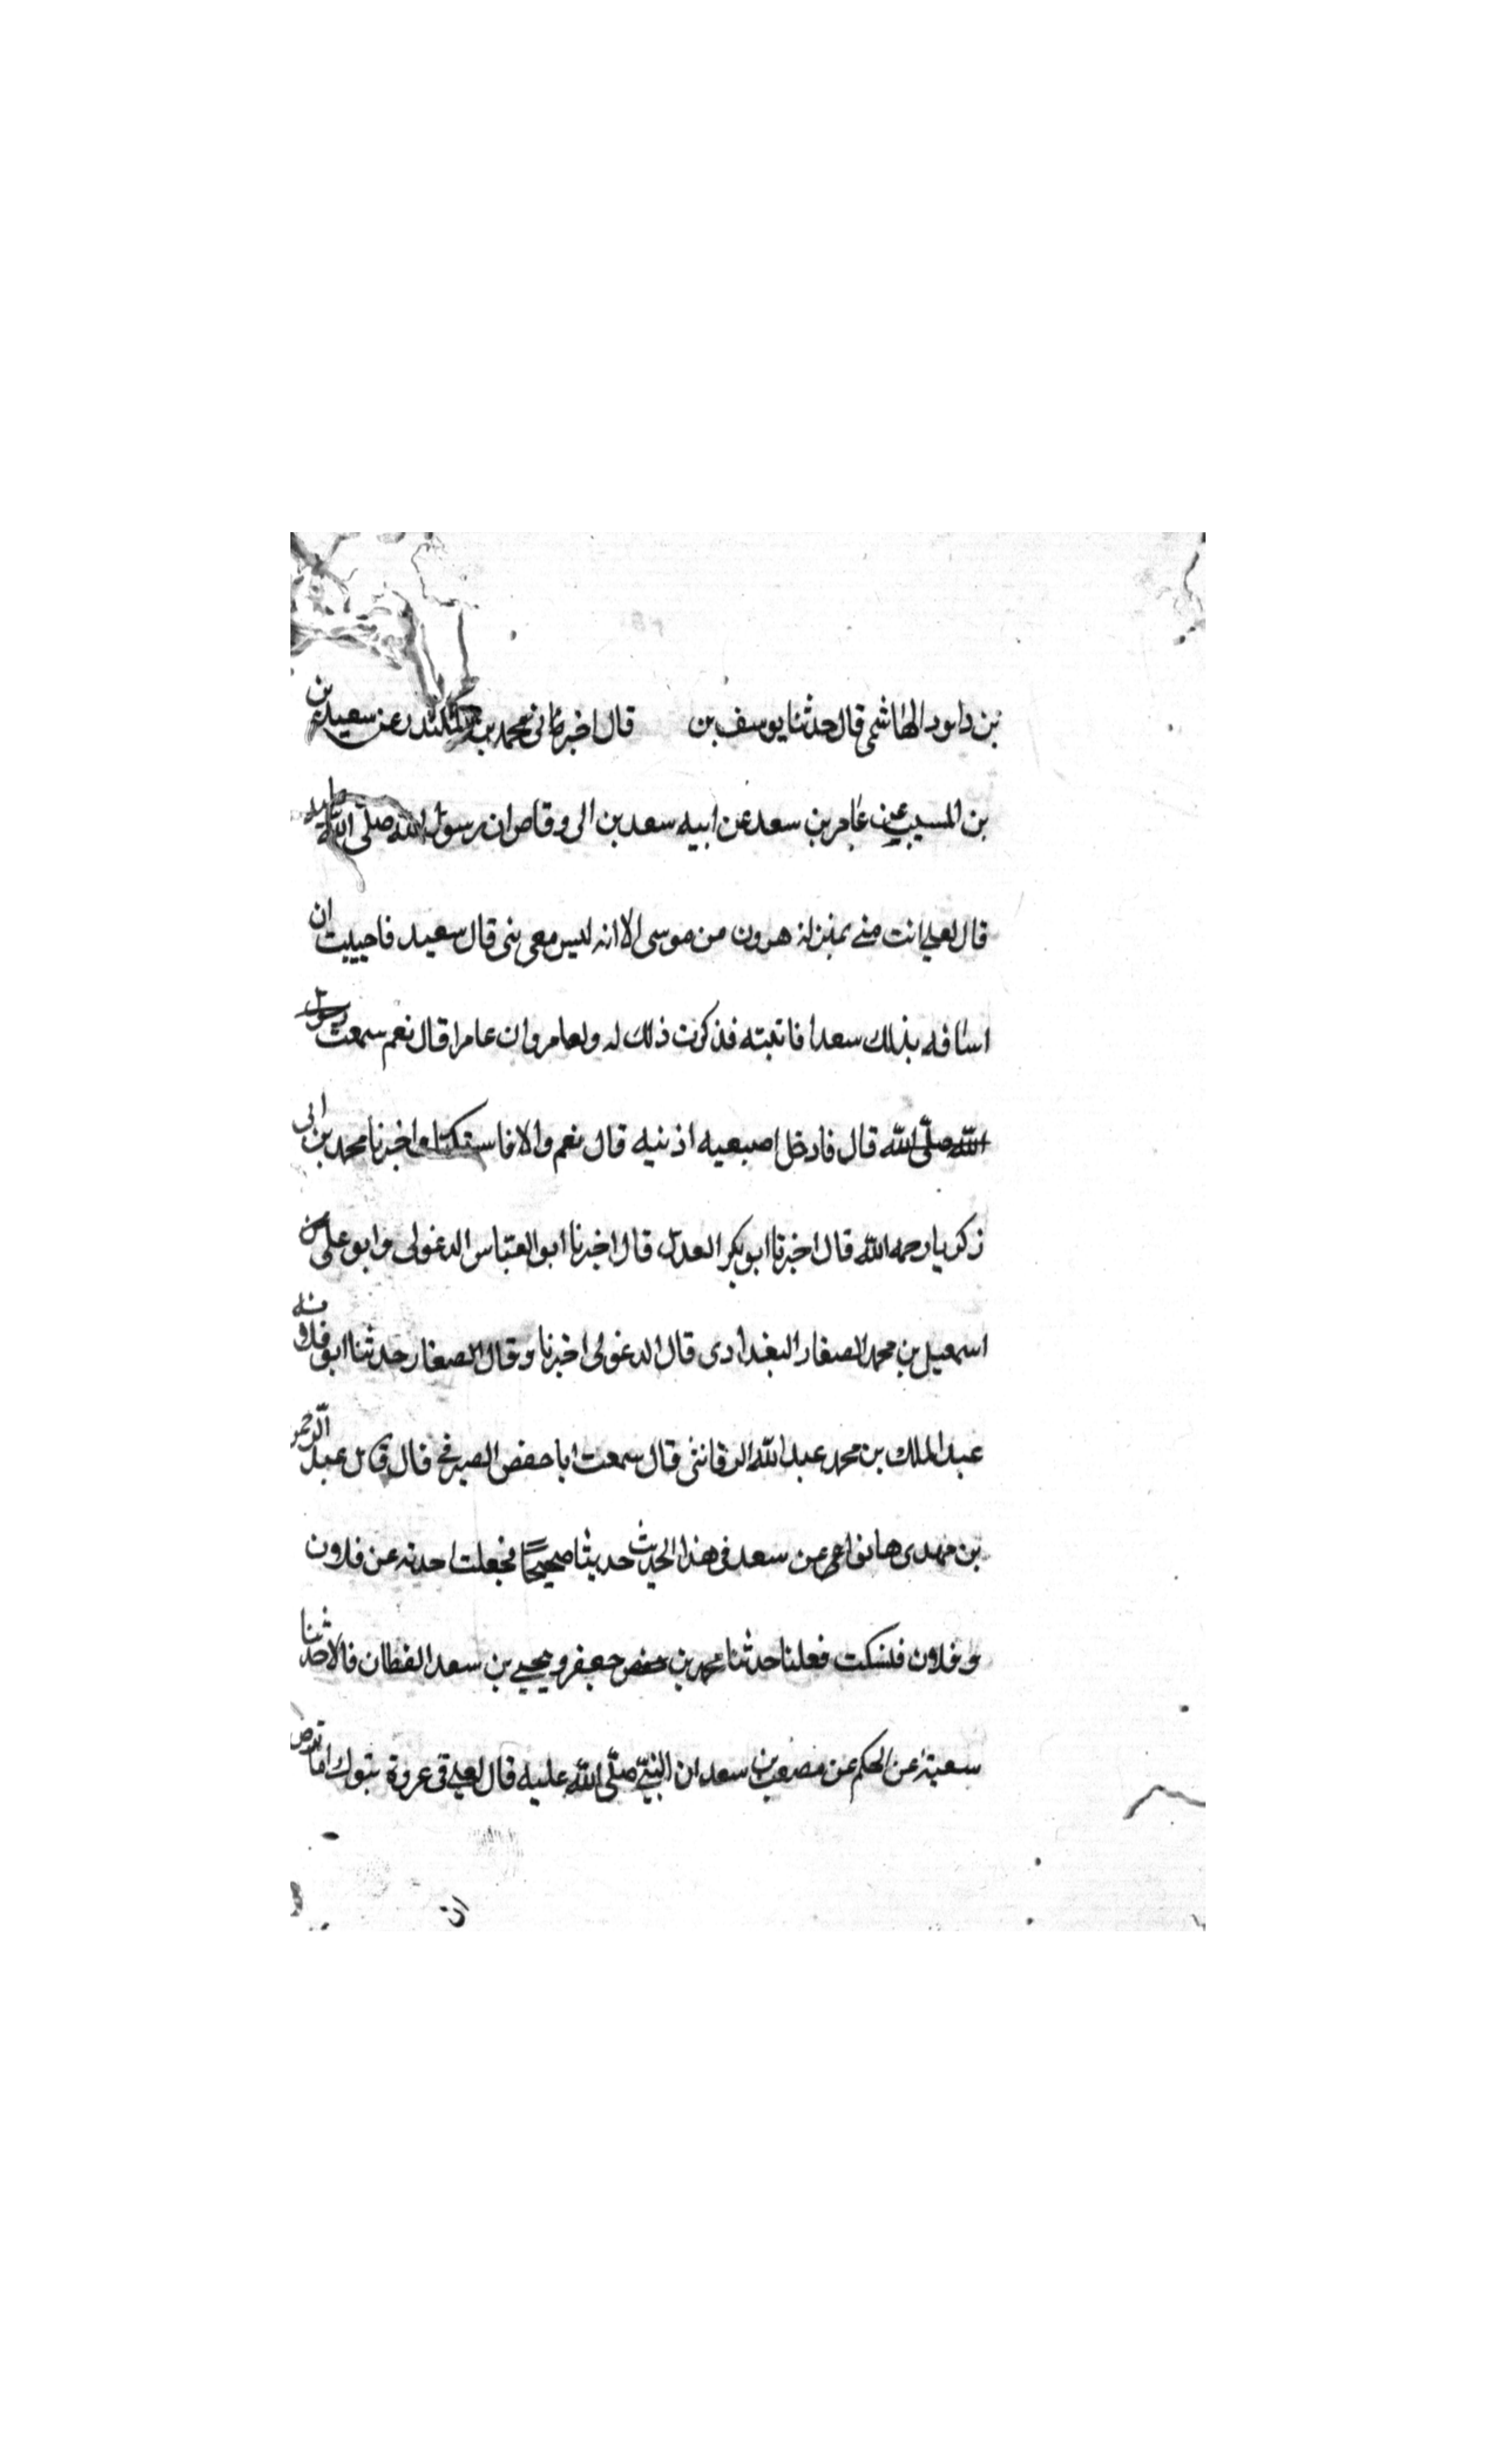 بن داود الهاشمى قال حدثنا يوسف بن قال اخبرنى محمد بن المنكندر عن سعيد بن
بن المسيب عن عامر بن سعد عن ابيه سعد بن ابى وقاص ان رسول الله صلّى الله عليه
قال لعلى انت منى بمنزلة هرون من موسى الا انه ليس معى بنى قال سعيد فاحببت ان
اسافه بذلك سعدا فاتيته فذكرت ذلك له ولعامر وان عامرا قال نعم سمعت رسول
الله صلّى الله قال فادخل اصبعيه اذنيه قال نعم والا فاستكتا واخبرنا محمد بن ابى
زكريا رحمه الله قال اخبرنا ابو بكر العدل قال اخبرنا ابو العبّاس الدغولى وابو على
اسمعيل بن محمد الصفار البغدادى قال الدغولى اخبرنا وقال الصفار حدثنا ابو قلابه
عبد الملك بن محمد عبد الله الرقاشى قال سمعت ابا حفص الصيرفى قال قال عبد الرحمن
بن مهدى هاتوا عن سعد فى هذا الحديث حديثا صحيحًا فجعلت احدثه عن فلان
وفلان فسكت فقلنا حدثنا محمد بن جعفر ويحيى بن سعد القطان قالا حدثنا
سعبة عن الحكم عن مصعب بن سعد ان النبىّ صلّى الله عليه قال لعلى فى عروة تبوك اما ترضى
ان